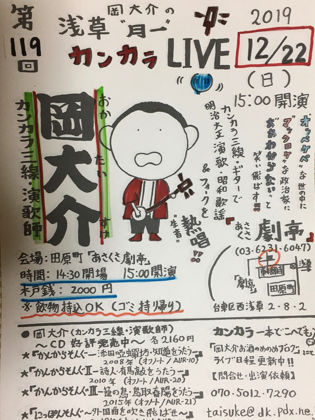 第119回
岡大介の
浅草"月一"
カンカラLIVE
2019
12/22
(日)
15:00開演
岡大介
おか たい すけ
カンカラ三線・演歌師
オッペケペーな世の中に
笑い飛ばす!!!
カンカラとギターで
明治大正演歌・昭和歌謡
&フォークを
"生音"
熱唱!!
『あさくさ劇亭』
(03-6231-6047)
「劇亭」
田原町
台東区西浅草2-8-2
会場:田原町『あさくさ劇亭』
時間:14:30開場 15:00開演
木戸銭:2000円
※飲物持込OK(ゴミ持帰り)
●岡大介(カンカラ三線・演歌師)
~CD好評発売中~ 各2160円
★『かんからそんぐ ~添田唖蝉坊・知道をうたう~』
2008年(オフノート/NR-20)
★『かんからそんぐⅡ~詩人・有馬敲をうたう~』
2010年(オフノート/AUR-20)
★『かんからそんぐⅢ~籠の鳥・鳥取春陽をうたう~』
2015年(オフノート/AUR-
カンカラ一本でどこへでも
『岡大介お酒のめのめブログ』
ライブ日程更新中!!
【問合せ・出演依頼】
070-5012-7290
taisuke@dk.pdx.ne.